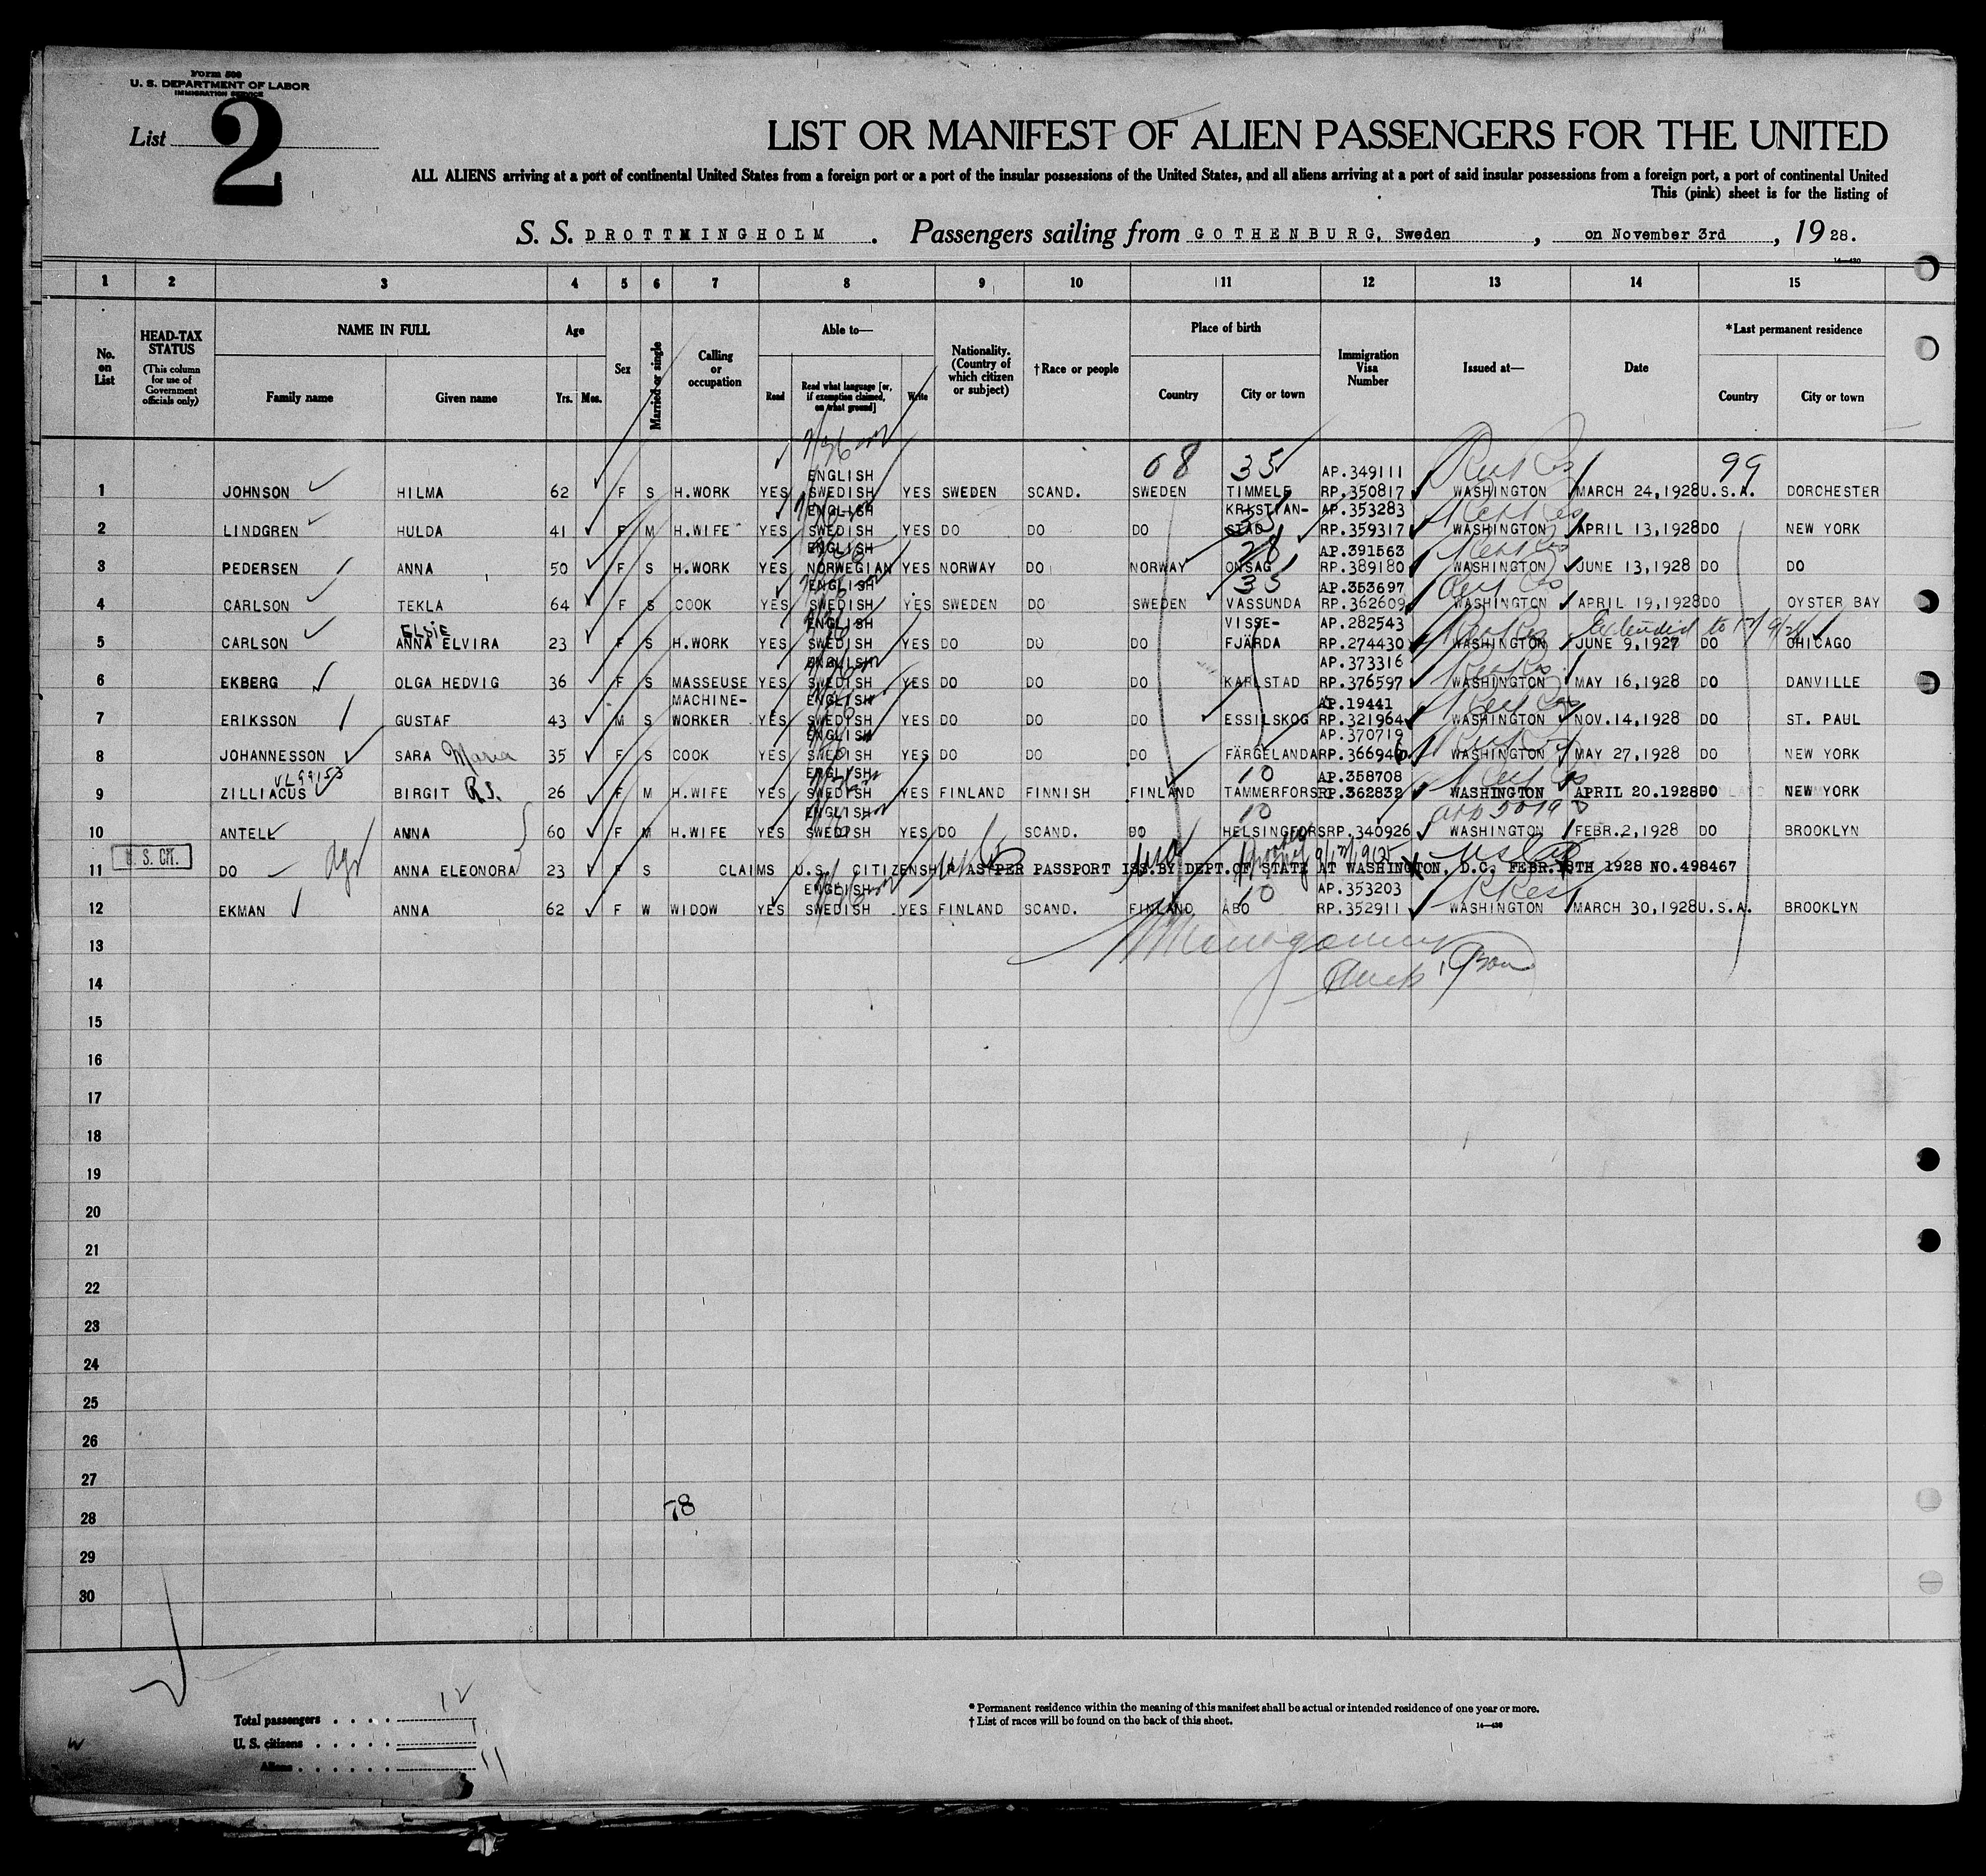 Form 500
U. S. DEPARTMENT OF LABOR
IMMIGRATION SERVICE
List 2
LIST OR MANIFEST OF ALIEN PASSENGERS FOR THE UNITED
ALL ALIENS arriving at a port of continental United States from a foreign port or a port of the insular possessions of the United States, and all aliens arriving at a port of said insular possessions from a foreign port, a port of continental United
This (pink) sheet is for the listing of
S. S. DROTTNINGHOLM . Passengers sailing from GOTHENBURG, Sweden , on November 3rd , 1928.
14—430
1 2 3 4 5 6 7 8 9 10 11 12 13 14 15
No. on List
HEAD-TAX STATUS (This column for use of Government officials only)
NAME IN FULL
Family name Given name
Age
Yrs. Mos.
Sex
Married or single
Calling or occupation
Able to—
Read
Read what language [or, if exemption claimed, on what ground]
Write
Nationality. (Country of which citizen or subject)
† Race or people
Place of birth
Country City or town
Immigration Visa Number
Issued at—
Date
*Last permanent residence
Country City or town
08 35 99
ENGLISH AP.349111
1 JOHNSON HILMA 62 F S H.WORK YES SWEDISH YES SWEDEN SCAND. SWEDEN TIMMELE RP.350817 WASHINGTON MARCH 24,1928 U.S.A. DORCHESTER
ENGLISH KRISTIAN- AP.353283
2 LINDGREN HULDA 41 F M H.WIFE YES SWEDISH YES DO DO DO STAD RP.359317 WASHINGTON APRIL 13,1928 DO NEW YORK
ENGLISH 28 AP.391563
3 PEDERSEN ANNA 50 F S H.WORK YES NORWEGIAN YES NORWAY DO NORWAY ONSAG RP.389180 WASHINGTON JUNE 13,1928 DO DO
ENGLISH 35 AP.353697
4 CARLSON TEKLA 64 F S COOK YES SWEDISH YES SWEDEN DO SWEDEN VASSUNDA RP.362609 WASHINGTON APRIL 19,1928 DO OYSTER BAY
ELSIE ENGLISH VISSE- AP.282543 Extended to
5 CARLSON ANNA ELVIRA 23 F S H.WORK YES SWEDISH YES DO DO DO FJÄRDA RP.274430 WASHINGTON JUNE 9,1927 DO CHICAGO
ENGLISH AP.373316
6 EKBERG OLGA HEDVIG 36 F S MASSEUSE YES SWEDISH YES DO DO DO KARLSTAD RP.376597 WASHINGTON MAY 16,1928 DO DANVILLE
MACHINE- ENGLISH AP.19441
7 ERIKSSON GUSTAF 43 M S WORKER YES SWEDISH YES DO DO DO ESSILSKOG RP.321964 WASHINGTON NOV.14,1928 DO ST. PAUL
ENGLISH AP.370719
8 JOHANNESSON SARA Maria 35 F S COOK YES SWEDISH YES DO DO DO FÄRGELANDA RP.366946 WASHINGTON MAY 27,1928 DO NEW YORK
VL99153 ENGLISH 10 AP.358708
9 ZILLIACUS BIRGIT R.S. 26 F M H.WIFE YES SWEDISH YES FINLAND FINNISH FINLAND TAMMERFORS RP.362832 WASHINGTON APRIL 20.1928 DO NEW YORK
ENGLISH 10
10 ANTELL ANNA 60 F M H.WIFE YES SWEDISH YES DO SCAND. DO HELSINGFORS RP.340926 WASHINGTON FEBR.2,1928 DO BROOKLYN
U. S. CIT.
11 DO ANNA ELEONORA 23 F S CLAIMS U.S. CITIZENSHIP AS PER PASSPORT ISS.BY DEPT.OF STATE AT WASHINGTON, D.C. FEBR.15TH 1928 NO.498467
ENGLISH 10 AP.353203
12 EKMAN ANNA 62 F W WIDOW YES SWEDISH YES FINLAND SCAND. FINLAND ABO RP.352911 WASHINGTON MARCH 30,1928 U.S.A. BROOKLYN
13
14
15
16
17
18
19
20
21
22
23
24
25
26
27
28 78
29
30
Total passengers . . . . 12
U. S. citizens . . . . . 1
Aliens . . . . . . 11
* Permanent residence within the meaning of this manifest shall be actual or intended residence of one year or more.
† List of races will be found on the back of this sheet.
14—430